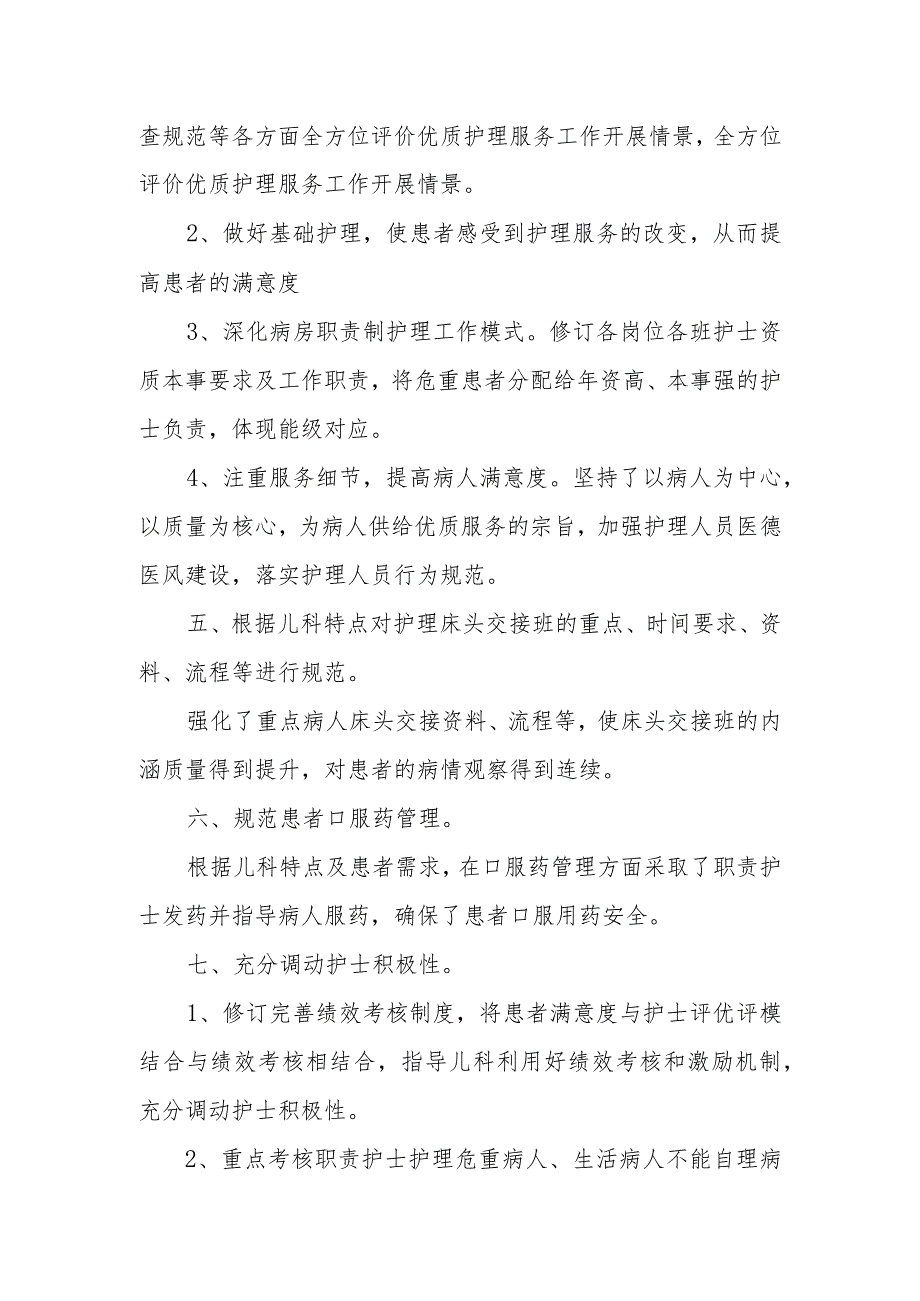 查规范等各方面全方位评价优质护理服务工作开展情景，全方位
评价优质护理服务工作开展情景。
2、做好基础护理，使患者感受到护理服务的改变，从而提
高患者的满意度
3、深化病房职责制护理工作模式。修订各岗位各班护士资
质本事要求及工作职责，将危重患者分配给年资高、本事强的护
士负责，体现能级对应。
4、注重服务细节，提高病人满意度。坚持了以病人为中心，
以质量为核心，为病人供给优质服务的宗旨，加强护理人员医德
医风建设，落实护理人员行为规范。
五、根据儿科特点对护理床头交接班的重点、时间要求、资
料、流程等进行规范。
强化了重点病人床头交接资料、流程等，使床头交接班的内
涵质量得到提升，对患者的病情观察得到连续。
六、规范患者口服药管理。
根据儿科特点及患者需求，在口服药管理方面采取了职责护
士发药并指导病人服药，确保了患者口服用药安全。
七、充分调动护士积极性。
1、修订完善绩效考核制度，将患者满意度与护士评优评模
结合与绩效考核相结合，指导儿科利用好绩效考核和激励机制，
充分调动护士积极性。
2、重点考核职责护士护理危重病人、生活病人不能自理病